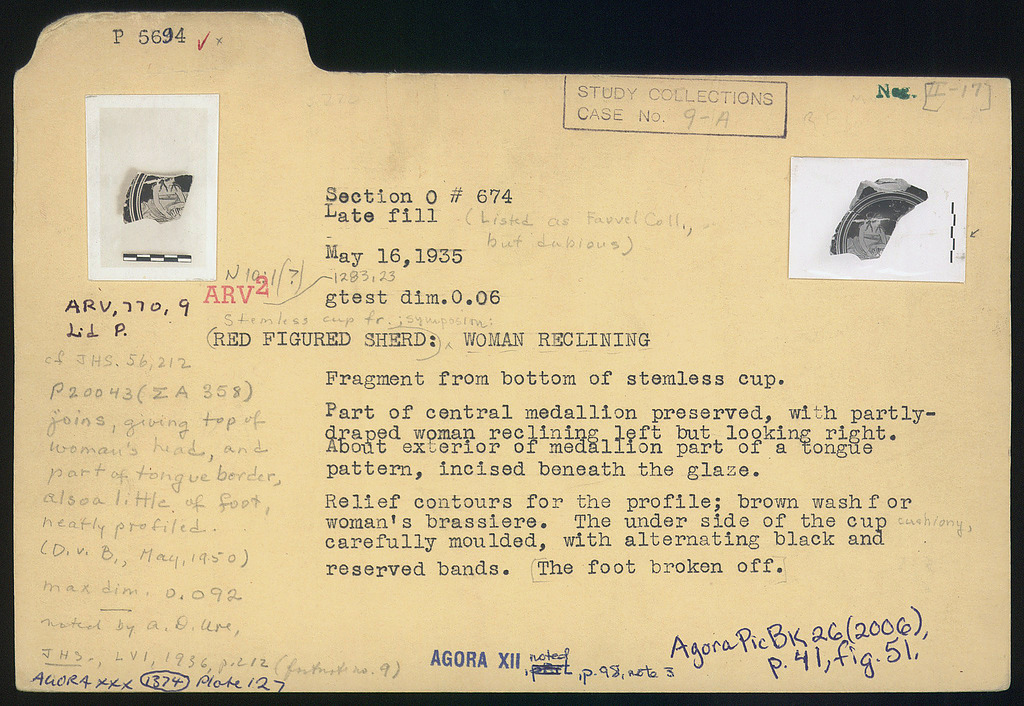 P 5694 ✓ x
STUDY COLLECTIONS
CASE No. 9-A
Neg. [II-17]
Section O # 674
Late fill (Listed as Fauvel Coll.,
but dubious)
May 16,1935
N 10:1(?)
1283,23
ARV²
gtest dim.0.06
ARV, 770, 9
Lid P.
Stemless cup fr.; symposion:
(RED FIGURED SHERD:) WOMAN RECLINING
Fragment from bottom of stemless cup.
Part of central medallion preserved, with partly-
draped woman reclining left but looking right.
About exterior of medallion part of a tongue
pattern, incised beneath the glaze.
Relief contours for the profile; brown wash for
woman's brassiere. The under side of the cup
carefully moulded, with alternating black and
reserved bands. [The foot broken off.]
cf JHS. 56, 212
P20043 (ΣA 358)
joins, giving top of
woman's head, and
part of tongue border,
also a little of foot,
neatly profiled.
(D. v. B., May, 1950)
max dim. 0.092
noted by A. D. Ure,
JHS., LVI, 1936, p.212 (footnot no. 9)
AGORA XXX 1374 Plate 127
AGORA XII, noted, p.98, note 3
Agora PicBK 26 (2006),
p. 41, fig. 51.